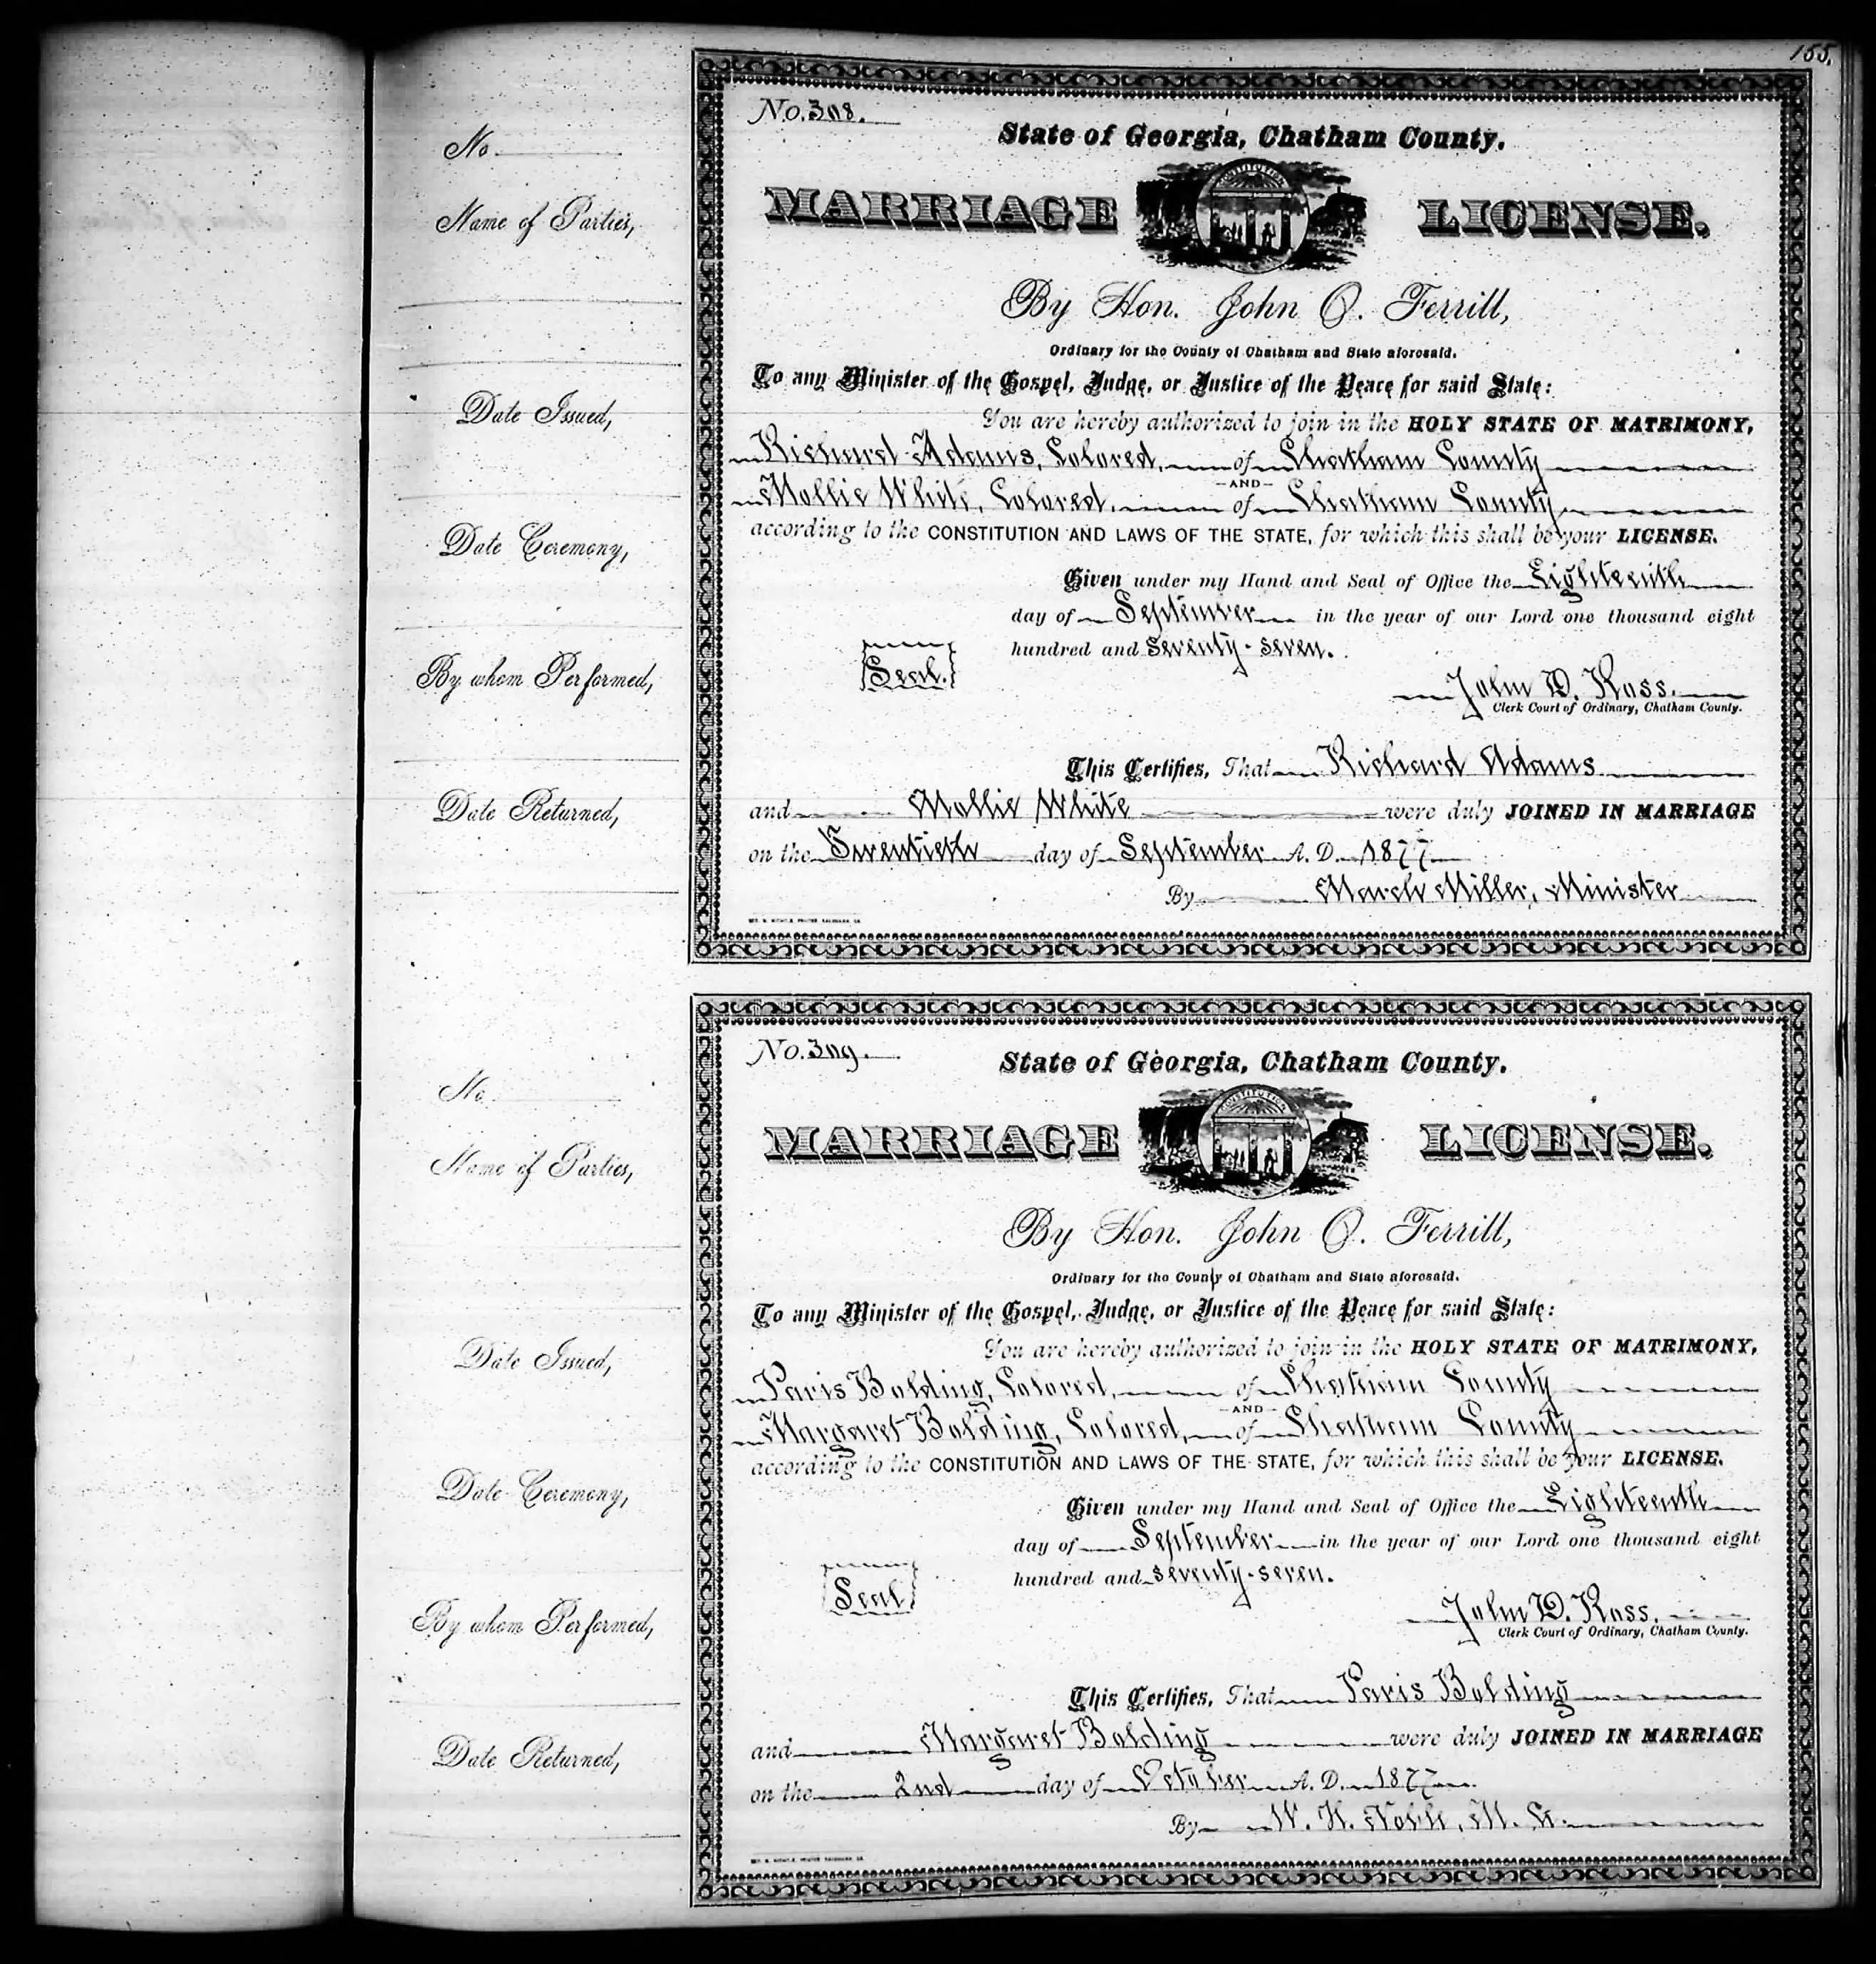 155.
No.
Name of Parties,
Date Issued,
Date Ceremony,
By whom Performed,
Date Returned,
No. 308.
State of Georgia, Chatham County.
MARRIAGE LICENSE.
CONSTITUTION
By Hon. John O. Ferrill,
Ordinary for the County of Chatham and State aforesaid.
To any Minister of the Gospel, Judge, or Justice of the Peace for said State:
You are hereby authorized to join in the HOLY STATE OF MATRIMONY,
Richard Adams, Colored, of Chatham County
AND
Mollie White, Colored, of Chatham County
according to the CONSTITUTION AND LAWS OF THE STATE, for which this shall be your LICENSE.
Given under my Hand and Seal of Office the Eighteenth
day of September in the year of our Lord one thousand eight
hundred and seventy-seven.
Seal.
John D. Ross.
Clerk Court of Ordinary, Chatham County.
This Certifies, That Richard Adams
and Mollie White were duly JOINED IN MARRIAGE
on the Twentieth day of September A. D. 1877
By March Miller, Minister
No.
Name of Parties,
Date Issued,
Date Ceremony,
By whom Performed,
Date Returned,
No. 309.
State of Georgia, Chatham County.
MARRIAGE LICENSE.
CONSTITUTION
By Hon. John O. Ferrill,
Ordinary for the County of Chatham and State aforesaid.
To any Minister of the Gospel, Judge, or Justice of the Peace for said State:
You are hereby authorized to join in the HOLY STATE OF MATRIMONY,
Paris Bolding, Colored, of Chatham County
AND
Margaret Bolding, Colored, of Chatham County
according to the CONSTITUTION AND LAWS OF THE STATE, for which this shall be your LICENSE.
Given under my Hand and Seal of Office the Eighteenth
day of September in the year of our Lord one thousand eight
hundred and seventy-seven.
Seal
John D. Ross.
Clerk Court of Ordinary, Chatham County.
This Certifies, That Paris Bolding
and Margaret Bolding were duly JOINED IN MARRIAGE
on the 2nd day of October A. D. 1877
By W. H. Noble, M. G.